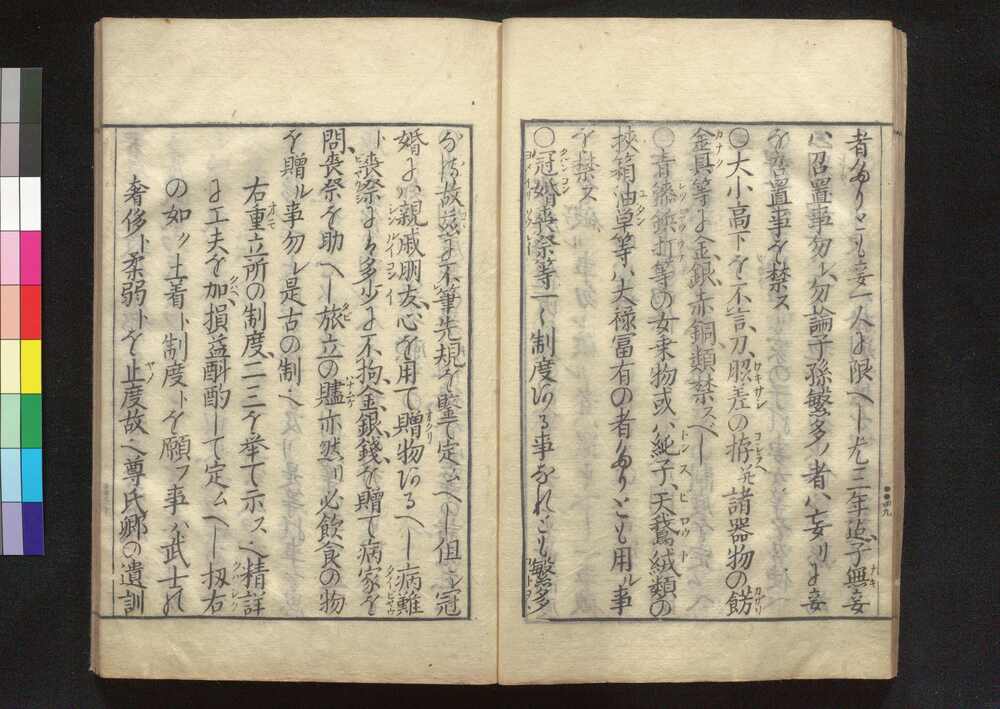 者なりとも妾一人に限へし尤三年迠子無妾
ハ召置事勿レ勿論子孫繁多ノ者ハ妄リに妾
を召置事を禁ス
○大小高下を不言刀、脇差の拵并諸器物の餝
金具等に金、銀、赤銅類禁スべし
○青漆鋲打等の女乗物或ハ純子、天鵞絨類の
挾箱油単等ハ大禄冨有の者なりとも用ル事
を禁ス
○冠婚喪祭等一々制度ある事なれとも繁多
なる故茲に不筆先規を鑒て定ムへし但シ冠
婚に親戚朋友、心を用て贈物あるへし病難
ト喪祭にハ多少に不拘、金、銀、銭を贈て病家を
問、喪祭を助へし旅立の贐亦然リ必飲食の物
を贈ル事勿レ是古の制也
右重立所の制度、二三を挙て示ス也精詳
に工夫を加損益酙酌して定ムへし扨右
の如ク土着ト制度トを願フ事ハ武士の
奢侈ト柔弱トを止度故也尊氏卿の遺訓